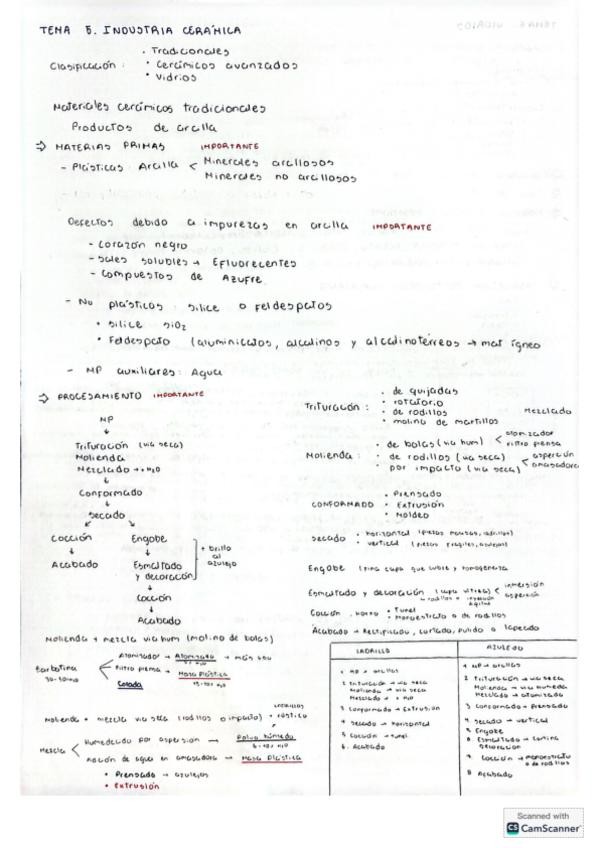 TEMA 5. INDUSTRIA CERÁMICA
Clasificación :
• Tradicionales
• Cerámicos avanzados
• Vidrios
Materiales cerámicos tradicionales
Productos de arcilla
⇒ MATERIAS PRIMAS IMPORTANTE
- Plásticas: Arcilla < Minerales arcillosos
Minerales no arcillosos
Defectos debido a impurezas en arcilla IMPORTANTE
- Corazón negro
- Sales solubles → Efluorecentes
- Compuestos de Azufre
- No plásticos: sílice o Feldespatos
• sílice SiO2
• Feldespato (aluminicatos, alcalinos y alcalinotérreos → mat ígneo
- MP auxiliares: Agua
⇒ PROCESAMIENTO IMPORTANTE
MP
↓
Trituración (vía seca)
Molienda
Mezclado → + H2O
↓
Conformado
↓
Secado
Cocción
↓
Acabado
Engobe
↓
Esmaltado
y decoración
+ brillo
al
azulejo
↓
Cocción
↓
Acabado
Trituración :
• de quijadas
• rotatorio
• de rodillos
• molino de martillos
Mezclado
Molienda :
• de bolas (vía hum) < atomizador
filtro prensa
• de rodillos (vía seca) < aspersión
amasadora
• por impacto (vía seca)
CONFORMADO
• Prensado
• Extrusión
• Moldeo
Secado
• horizontal
• vertical
Engobe (fina capa que cubre y homogeneiza
Esmaltado y decoración (capa vítrea) < inmersión
aspersión
Cocción. horno
• Túnel
• Monoestrato o de rodillos
Acabado → Rectificado, cortado, pulido o lapeado
Molienda + mezcla vía hum (molino de bolas)
Barbotina
Atomizador → Atomizado → más seco
Filtro prensa → Masa plástica
Colada
Molienda + mezcla vía seca (rodillos o impacto)
ladrillos
+ rústico
Mezcla < Humedecido por aspersión → Polvo húmedo
Adición de agua en amasadora → Masa Plástica
• Prensado → azulejos
• Extrusión
LADRILLO
1 MP → arcillas
2 Trituración → vía seca
Molienda → vía seca
Mezclado → + H2O
3 Conformado → Extrusión
4 Secado → horizontal
5 Cocción → túnel
6. Acabado
AZULEJO
1 MP → arcillas
2 Trituración → vía seca
Molienda → vía húmeda
Mezclado → atomizado
3 Conformado → Prensado
4 Secado → vertical
5 Engobe
6 Esmaltado → cortina
decoración
7 Cocción → monoestrato
o de rodillos
8 Acabado
Scanned with
CS CamScanner